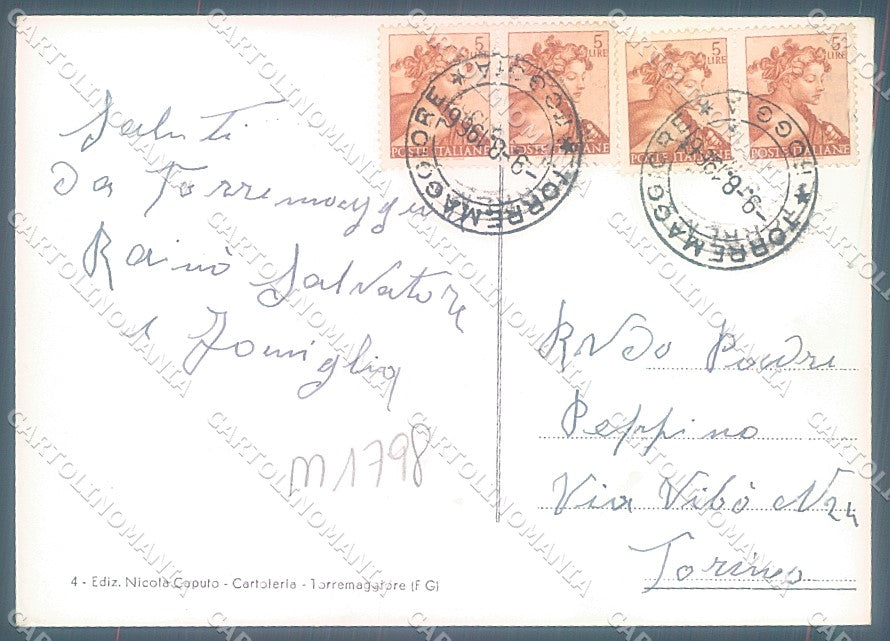 5 LIRE
POSTE ITALIANE
5 LIRE
POSTE ITALIANE
5 LIRE
POSTE ITALIANE
5 LIRE
POSTE ITALIANE
TORREMAGGIORE * FOGGIA *
-9-8-1966
TORREMAGGIORE * FOGGIA *
-9-8-196
Saluti
Da Torremaggiore
Rainò Salvatore
e Famiglia
m1798
RNDo Padre
Peppino
Via Vibò N 24
Torino
4 - Ediz. Nicola Caputo - Cartoleria - Torremaggiore (FG)
CARTOLINOMANIA